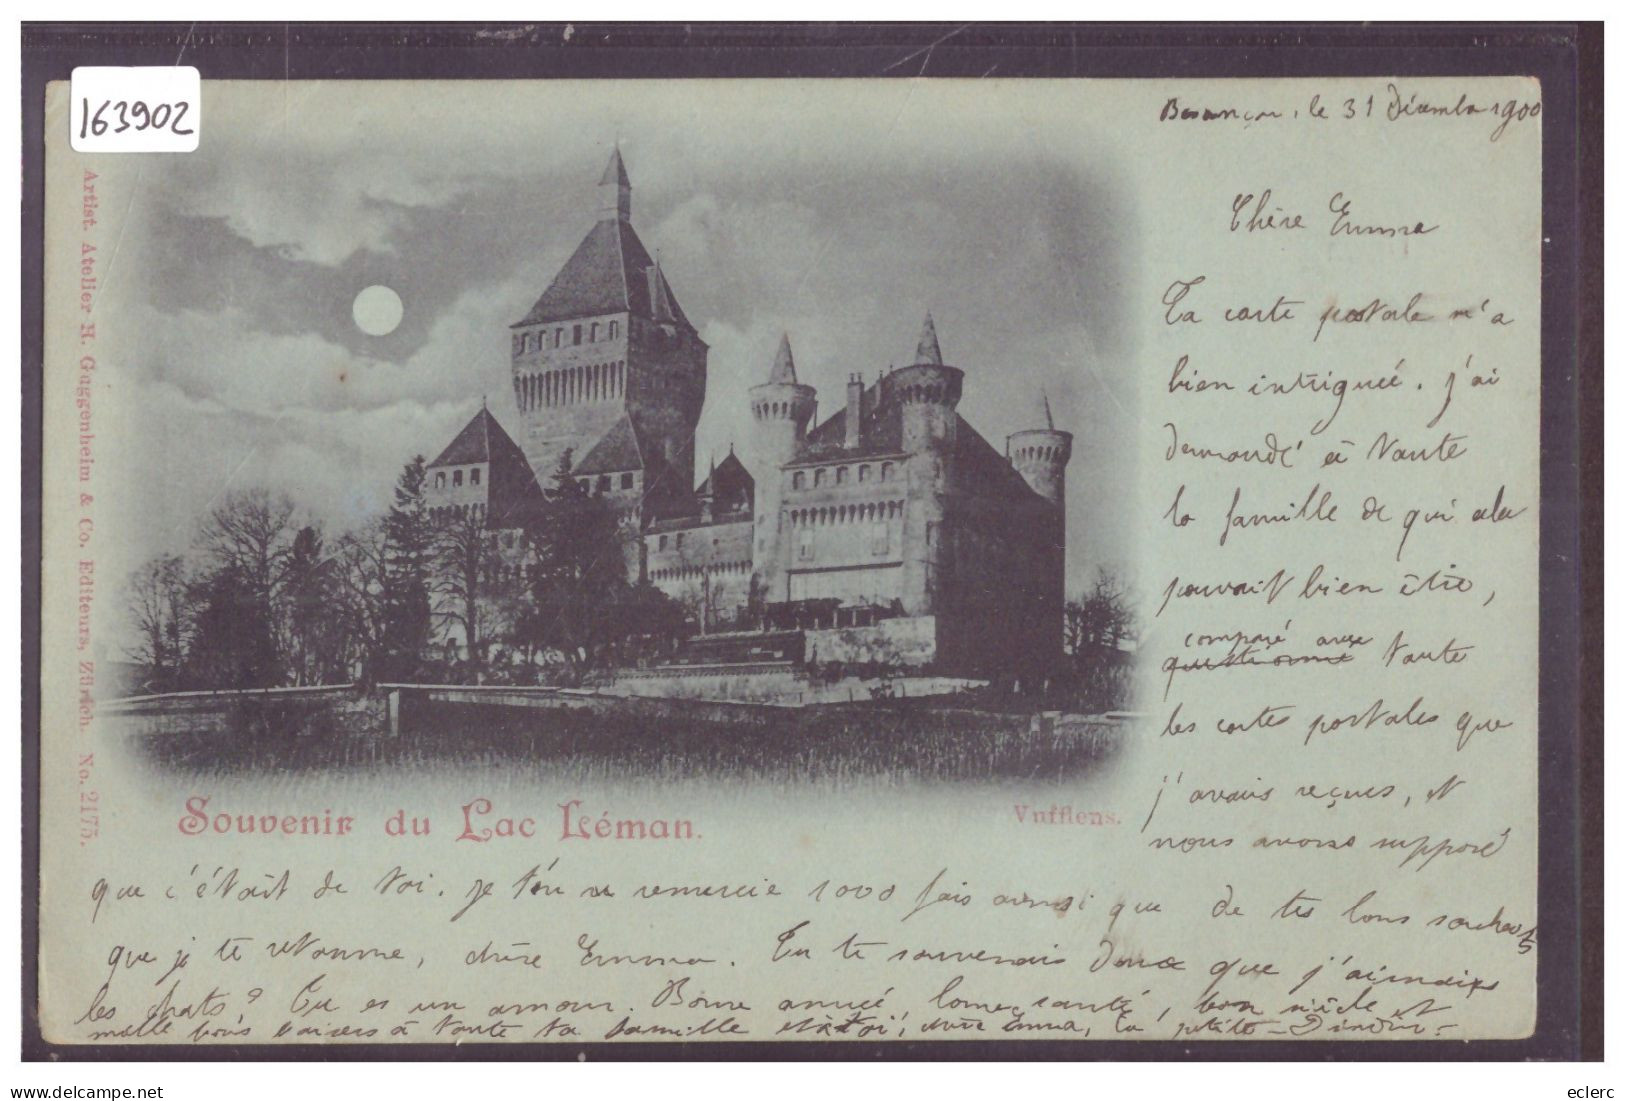 163902
Besançon, le 31 Décembre 1900
Chère Emma
Ta carte postale m'a
bien intriguée. j'ai
demandé à toute
la famille de qui cela
pouvait bien être,
comparé avec
questionné toute
les cartes postales que
j'avais reçues, et
nous avons supposé
que c'était de toi. je t'en remercie 1000 fois ainsi que de tes bons souhaits
que je te retourne, chère Emma. Tu te souvenais donc que j'aimais
les chats? Tu es un amour. Bonne année, bonne santé, bon siècle et
mille bons baisers à toute ta famille et à toi, chère Emma, ta petite
Artist. Atelier H. Guggenheim & Co. Editeurs, Zürich. No. 2175.
Souvenir du Lac Léman.
Vufflens.
delcampe.net
eclerc